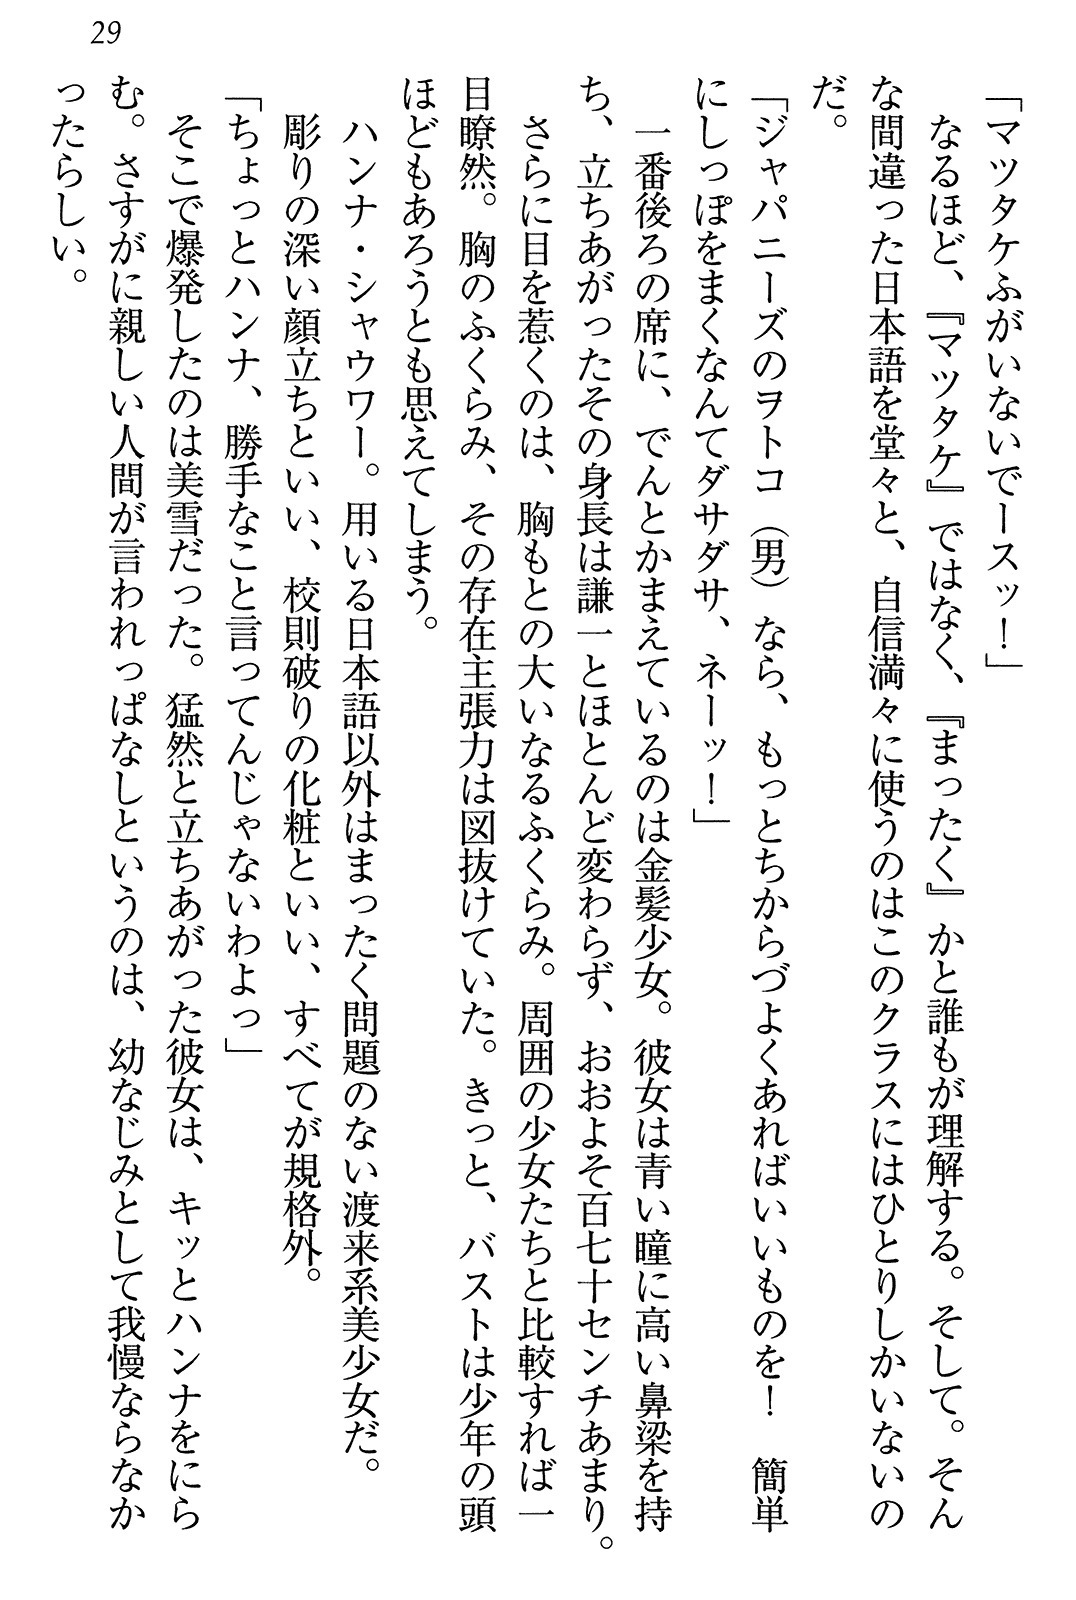 29
「マツタケふがいないでースッ！」
なるほど、『マツタケ』ではなく、『まったく』かと誰もが理解する。そして。そん
な間違った日本語を堂々と、自信満々に使うのはこのクラスにはひとりしかいないの
だ。
「ジャパニーズのヲトコ（男）なら、もっとちからづよくあればいいものを！　簡単
にしっぽをまくなんてダサダサ、ネーッ！」
一番後ろの席に、でんとかまえているのは金髪少女。彼女は青い瞳に高い鼻梁を持
ち、立ちあがったその身長は謙一とほとんど変わらず、おおよそ百七十センチあまり。
さらに目を惹くのは、胸もとの大いなるふくらみ。周囲の少女たちと比較すれば一
目瞭然。胸のふくらみ、その存在主張力は図抜けていた。きっと、バストは少年の頭
ほどもあろうとも思えてしまう。
ハンナ・シャウワー。用いる日本語以外はまったく問題のない渡来系美少女だ。
彫りの深い顔立ちといい、校則破りの化粧といい、すべてが規格外。
「ちょっとハンナ、勝手なこと言ってんじゃないわよっ」
そこで爆発したのは美雪だった。猛然と立ちあがった彼女は、キッとハンナをにら
む。さすがに親しい人間が言われっぱなしというのは、幼なじみとして我慢ならなか
ったらしい。